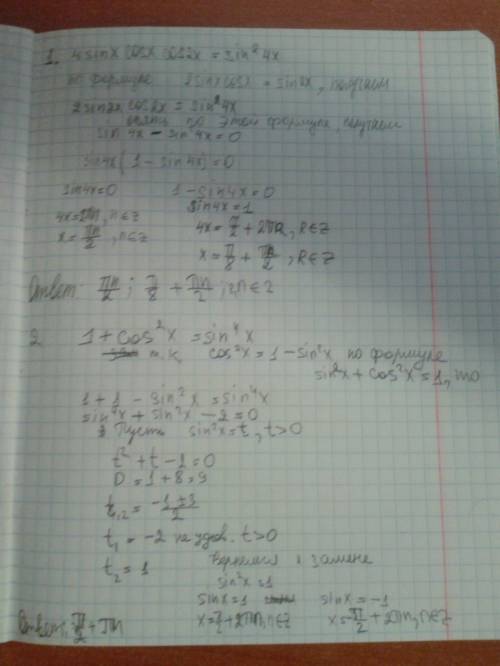 1. 4 sinx cosx cos2x = sin²4x
по формуле 2sinx cosx = sin2x, получаем
2 sin2x cos2x = sin²4x
опять по этой формуле, получаем
sin 4x - sin²4x = 0
sin4x(1 - sin4x) = 0
sin4x = 0 1 - sin4x = 0
sin4x = 1
4x = πn, n∈Z 4x = π/2 + 2πk, k∈Z
x = πn/2, n∈Z x = π/8 + πn/2, k∈Z
Ответ: πn/2; π/8 + πn/2, n∈Z
2. 1 + cos²x = sin⁴x
т.к. cos²x = 1 - sin²x по формуле
sin²x + cos²x = 1, то
1 + 1 - sin²x = sin⁴x
sin⁴x + sin²x - 2 = 0
Пусть sin²x = t, t>0
t² + t - 2 = 0
D = 1 + 8 = 9
t₁,₂ = -1±3/2
t₁ = -2 не удов. t>0
t₂ = 1 Вернемся к замене
sin²x = 1
sinx = 1 sinx = -1
x = π/2 + 2πn, n∈Z x = -π/2 + 2πn, n∈Z
Ответ: π/2 + πn